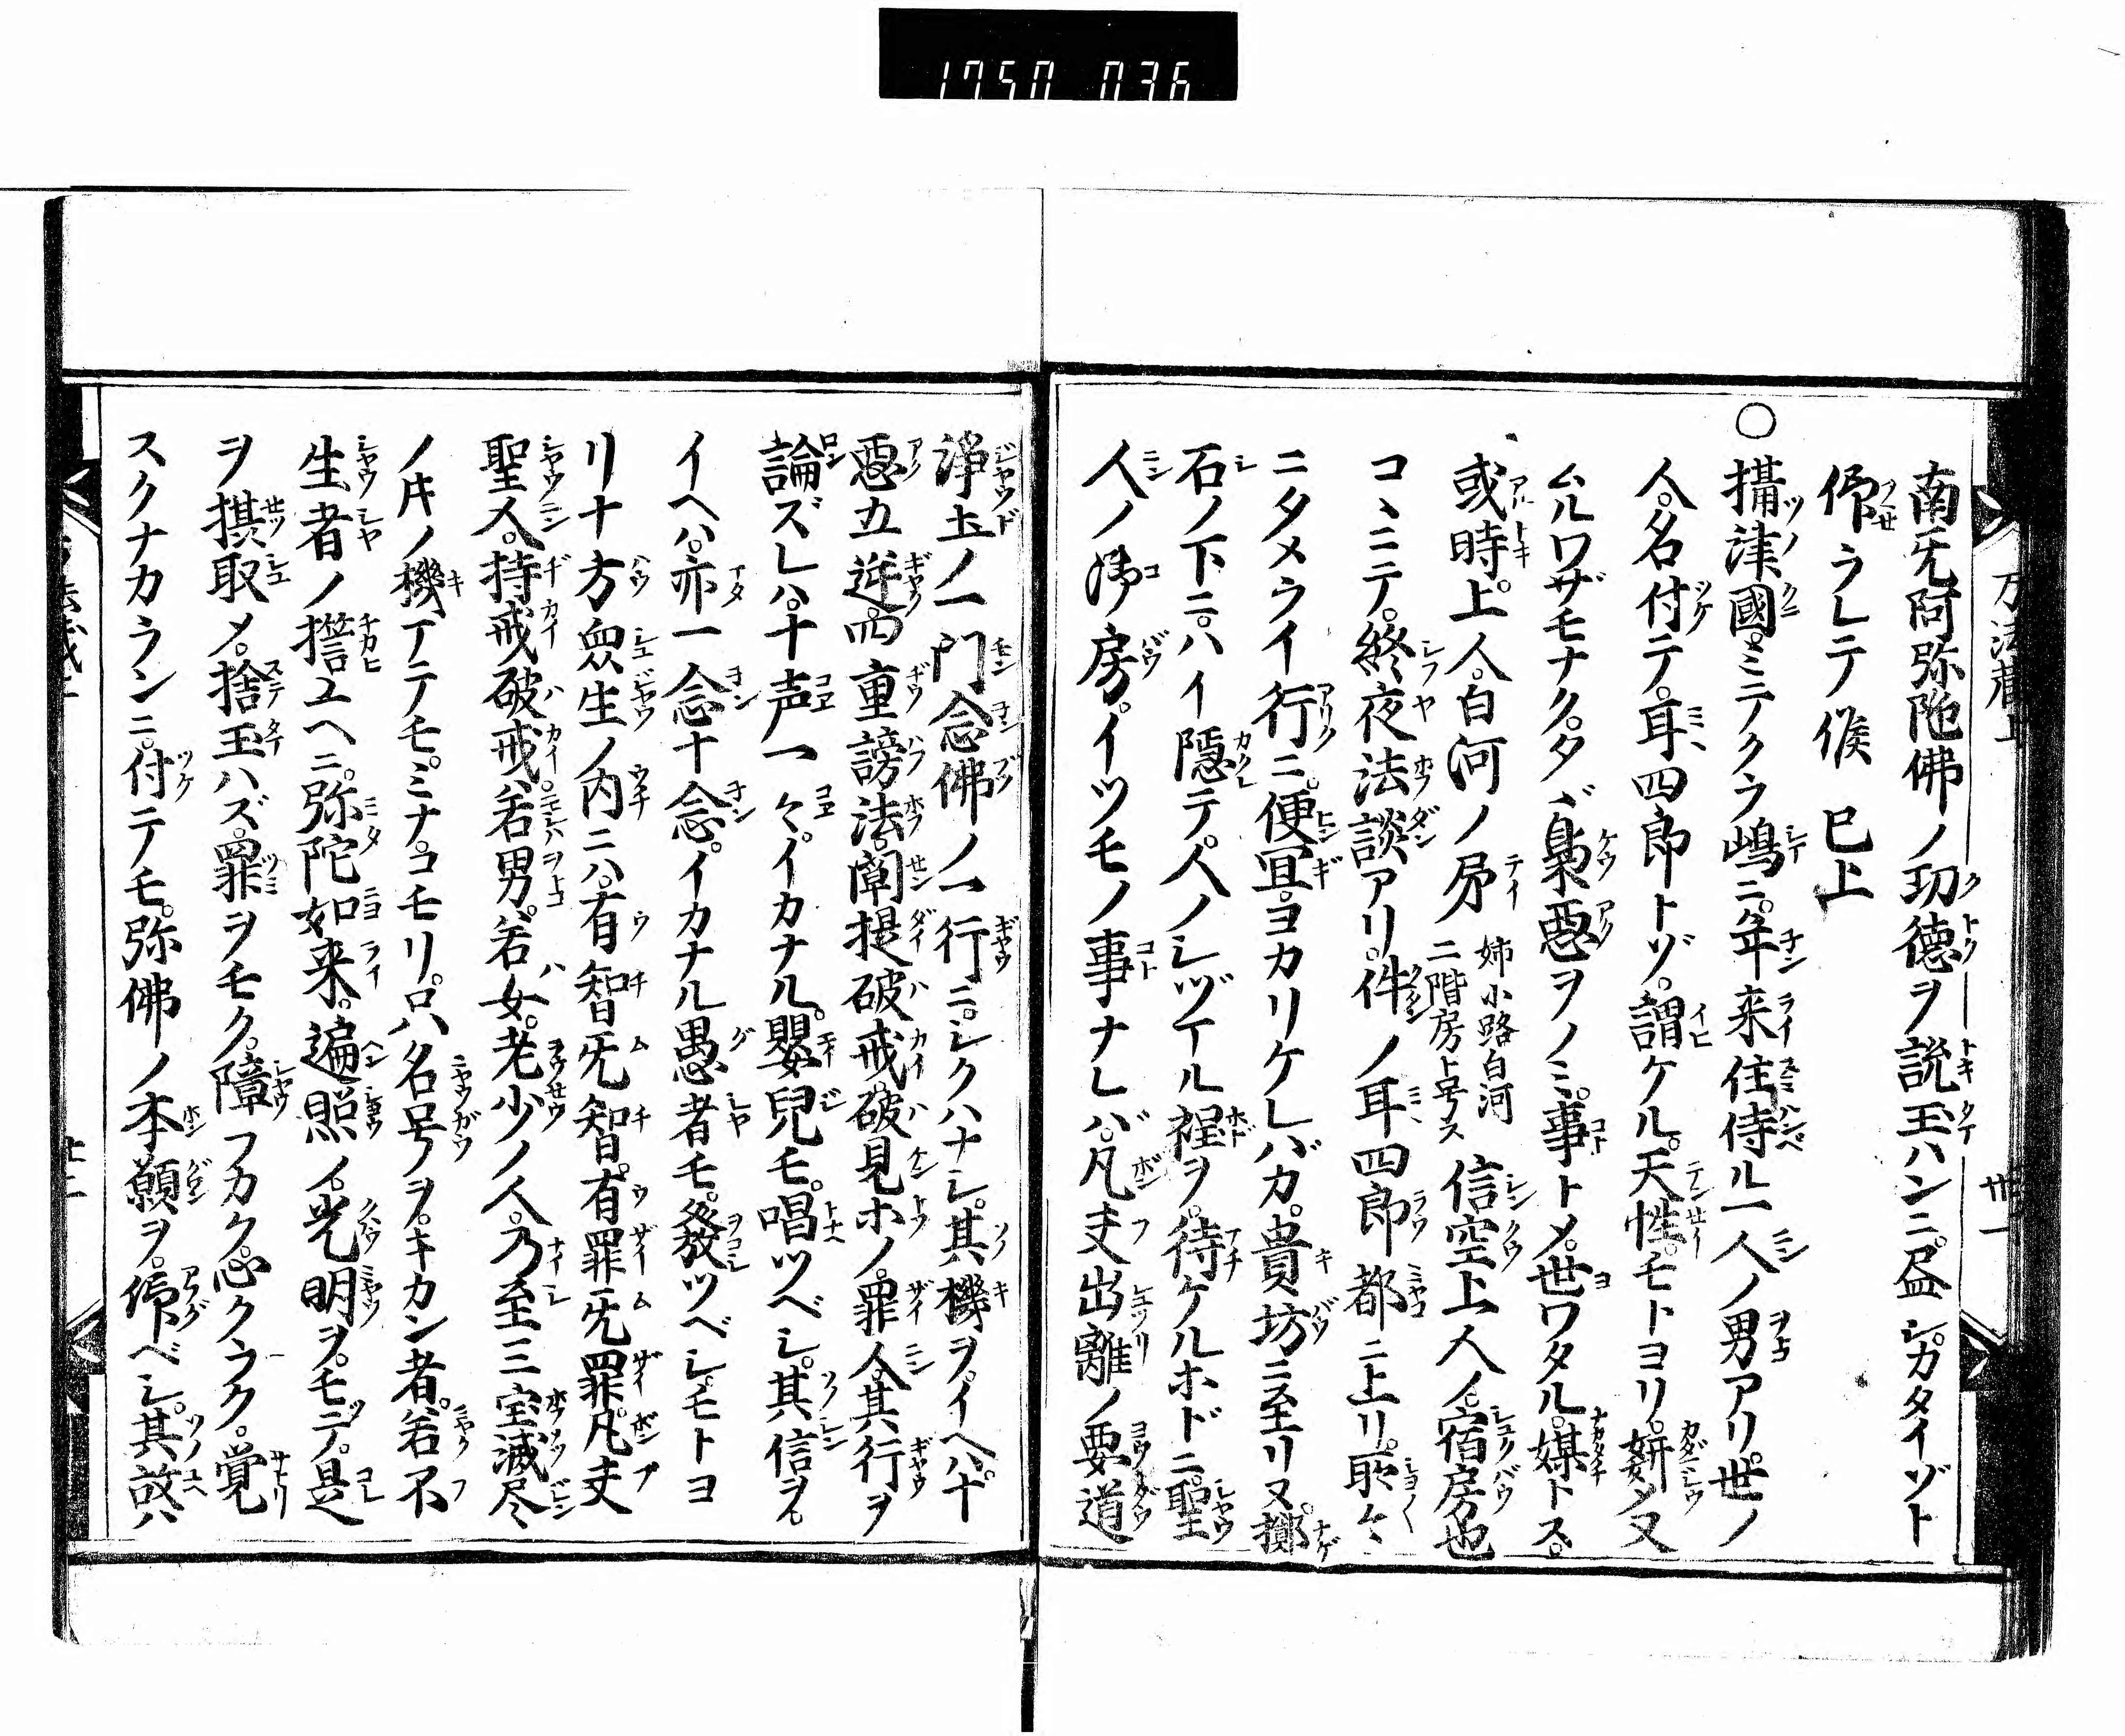 1750 036
南旡阿弥陀佛ノ功徳ヲ説玉ハンニ。尽シカタイゾト
仰ラレテ候 已上
○攝津國。ミテクラ嶋ニ。年来住侍ル一人ノ男アリ。世ノ
人。名付テ。耳四郎トゾ。謂ケル。天性。モトヨリ。姧ダ又
ムルワザモナク。タヾ梟惡ヲノミ。事トメ。世ワタル。媒トス。
或時。上人。白河ノ房 姉小路白河 二階房ト号ス 信空上人ノ。宿房也
コヽニテ。終夜法談アリ。件ノ耳四郎都ニ上リ。所々
ニタメライ行ニ。便冝。ヨカリケレバカ。貴坊ニ至リヌ。擲
石ノ下ニ。ハイ隱テ。人ノシヅマル程ヲ。待ケルホドニ。聖
人ノ御房。イツモノ事ナレバ。凡夫出離ノ要道
淨土ノ一門念佛ノ一行ニ。シクハナシ。其機ヲ。イヘハ。十
惡五逆。四重謗法。闡提破戒。破見ホノ。罪人。其行ヲ
論ズレハ。十声一々。イカナル。嬰兒モ。唱ツベシ。其信ヲ。
イヘハ。亦一念十念。イカナル愚者モ。發ツベシ。モトヨ
リ十方衆生ノ内ニハ。有智旡智。有罪旡罪。凡夫
聖人。持戒破戒。若男。若女。老少ノ人。乃至三宝滅尽
ノ片ノ機マテモ。ミナ。コモリ。只名号ノヲ。キカン者。若不
生者ノ誓ユヘニ。弥陀如来。遍照ノ光明ヲ。モテ。是
ヲ摂取メ。捨玉ハズ。罪ヲモク。障フカク心クラク。覚
スクナカランニ。付テモ。弥佛ノ本願ヲ。仰ベシ。其故ハ